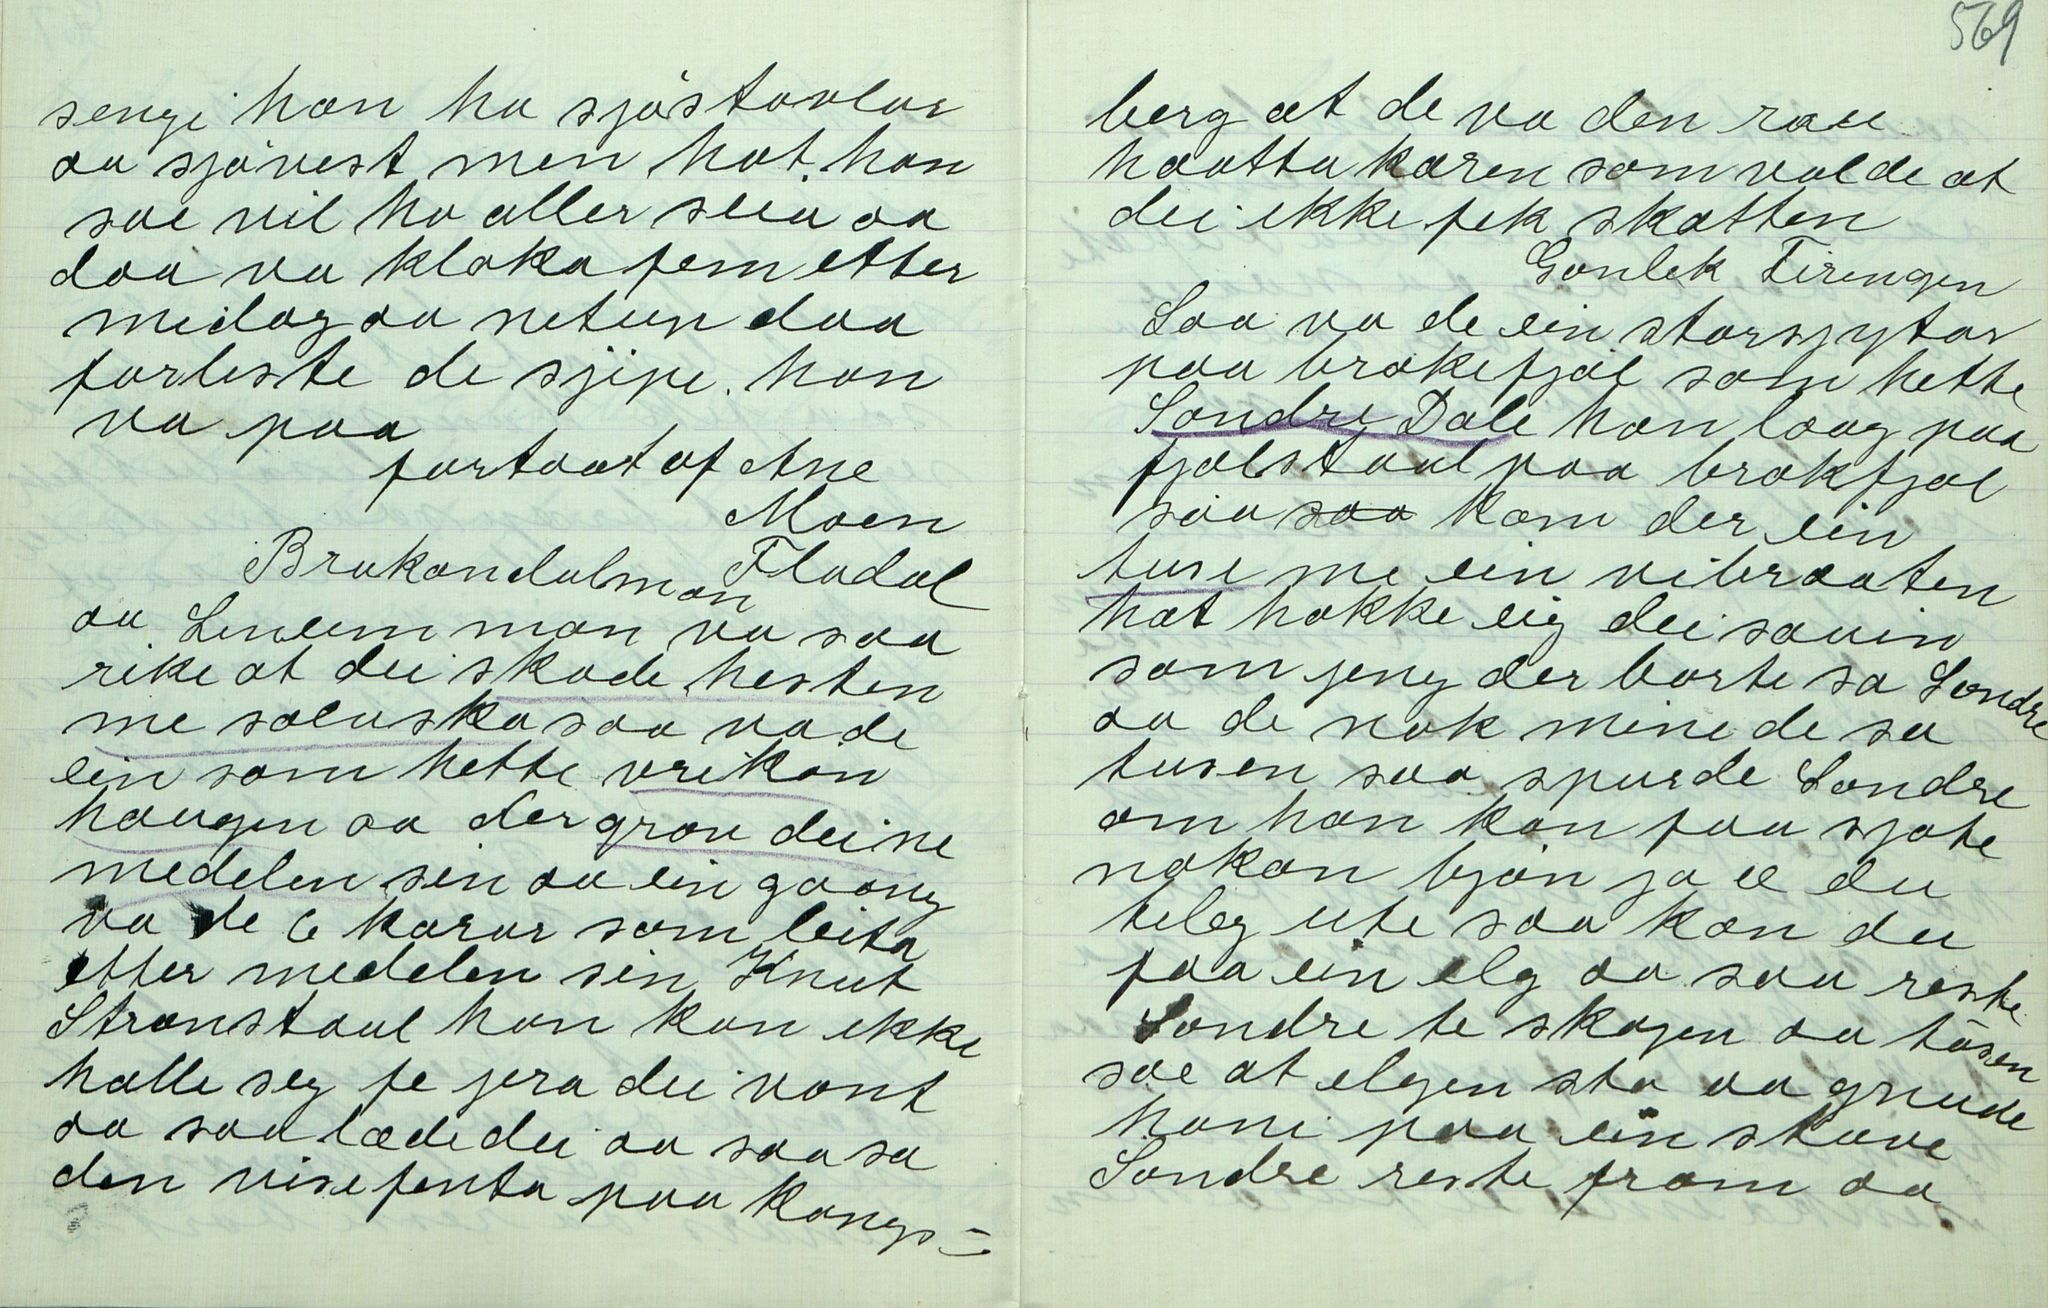 sengi han ha sjøstavlar
aa sjøvest men hat han
sae vil ha aller seia aa
daa va kloka fem etter
midag aa netup daa
forleste de sjipe han
va paa
fortaat af Ane
Moen
Fladal
Brokandalman
aa Leneim man va saa
rike at dei skode hesten
me solvsko saa va de
ein som hette vrikon
haugen aa der grov dei ne
medelen sin aa ein gaang
va de 6 karar som leita
etter medelen sin Knut
Stronstaul han kan ikke
halle seg fe jera dei vont
aa saa lædde dei aa saa sa
den vise jenta paa kongs=
569
berg at de va den rau
haatta karen som valde at
dei ikke fek skatten
Gonlek Tirengen
Saa va de ein storsjytar
paa brokefjøl som hette
Sondre Dale han laag paa
fjølstaul paa brokfjøl
saa saa kom der ein
tuse me ein vibraaten
hat hokke eig dei sauin
som jeng der borte sa Sondre
aa de nok mine de sa
tusen saa spurde Sondre
om han kan faa sjote
nokon bjøn ja æ du
teleg ute saa kan du
faa ein elg aa saa reiste
Sondre te skogen aa tusen
sae at elgen sto aa gnude
honi paa ein stuve
Sondre reste fram aa